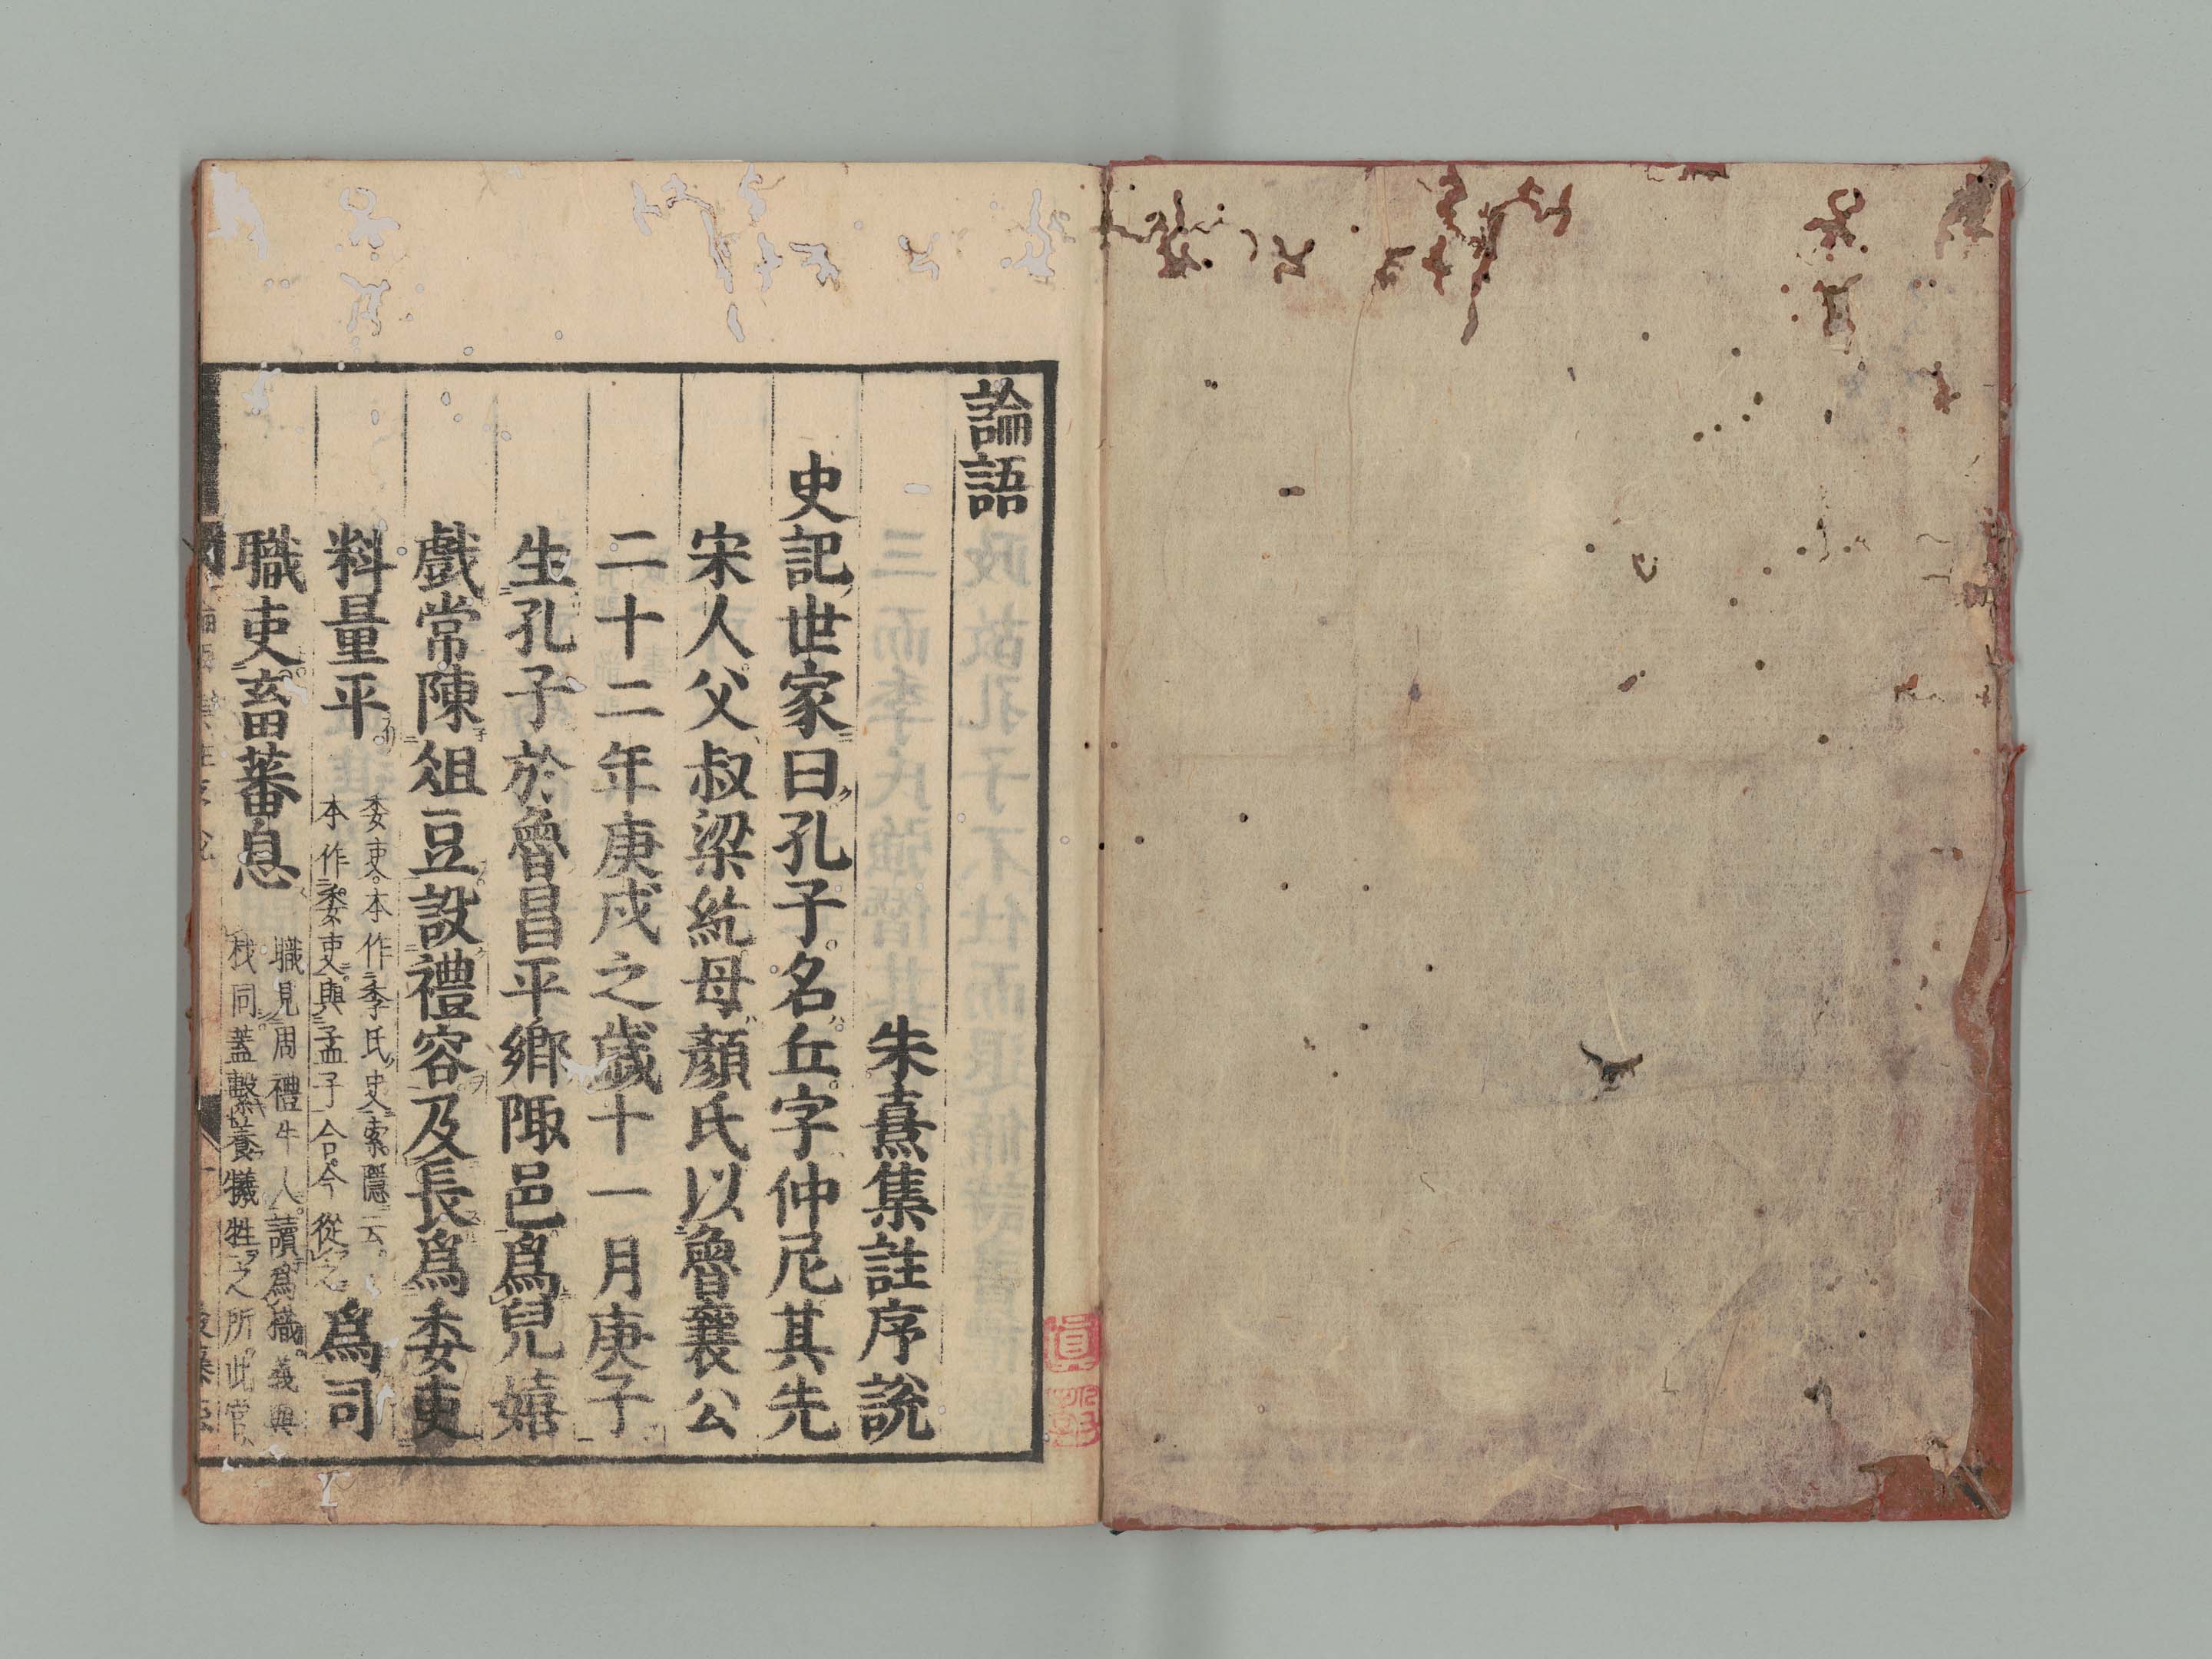 論語
朱熹集註序說
史記世家曰孔子名丘字仲尼其先
宋人父叔梁紇母顏氏以魯襄公
二十二年庚戌之歲十一月庚子
生孔子於魯昌平鄉陬邑爲兒嬉
戲常陳俎豆設禮容及長爲委吏
料量平
委吏本作季氏史索隱云
本作委吏與孟子合今從之
爲司
職吏畜蕃息
職見周禮牛人讀爲樴義與
杙同蓋繫養犧牲之所此官